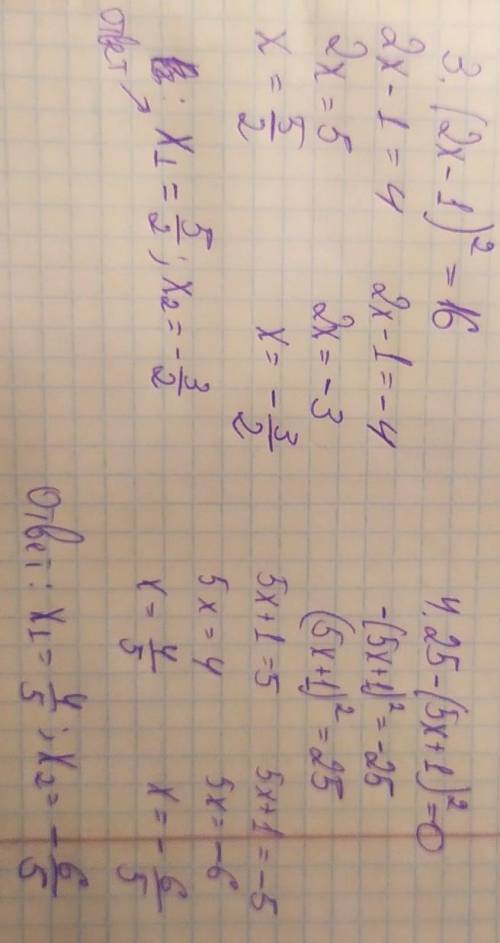 3. (2x-1)² = 16
2x-1 = 4   2x-1 = -4
2x = 5   2x = -3
x = 5/2   x = -3/2
ответ → : x₁ = 5/2; x₂ = -3/2
4. 25-(5x+1)²=0
-(5x+1)² = -25
(5x+1)² = 25
5x+1 = 5   5x+1 = -5
5x = 4   5x = -6
x = 4/5   x = -6/5
Ответ: x₁ = 4/5; x₂ = -6/5